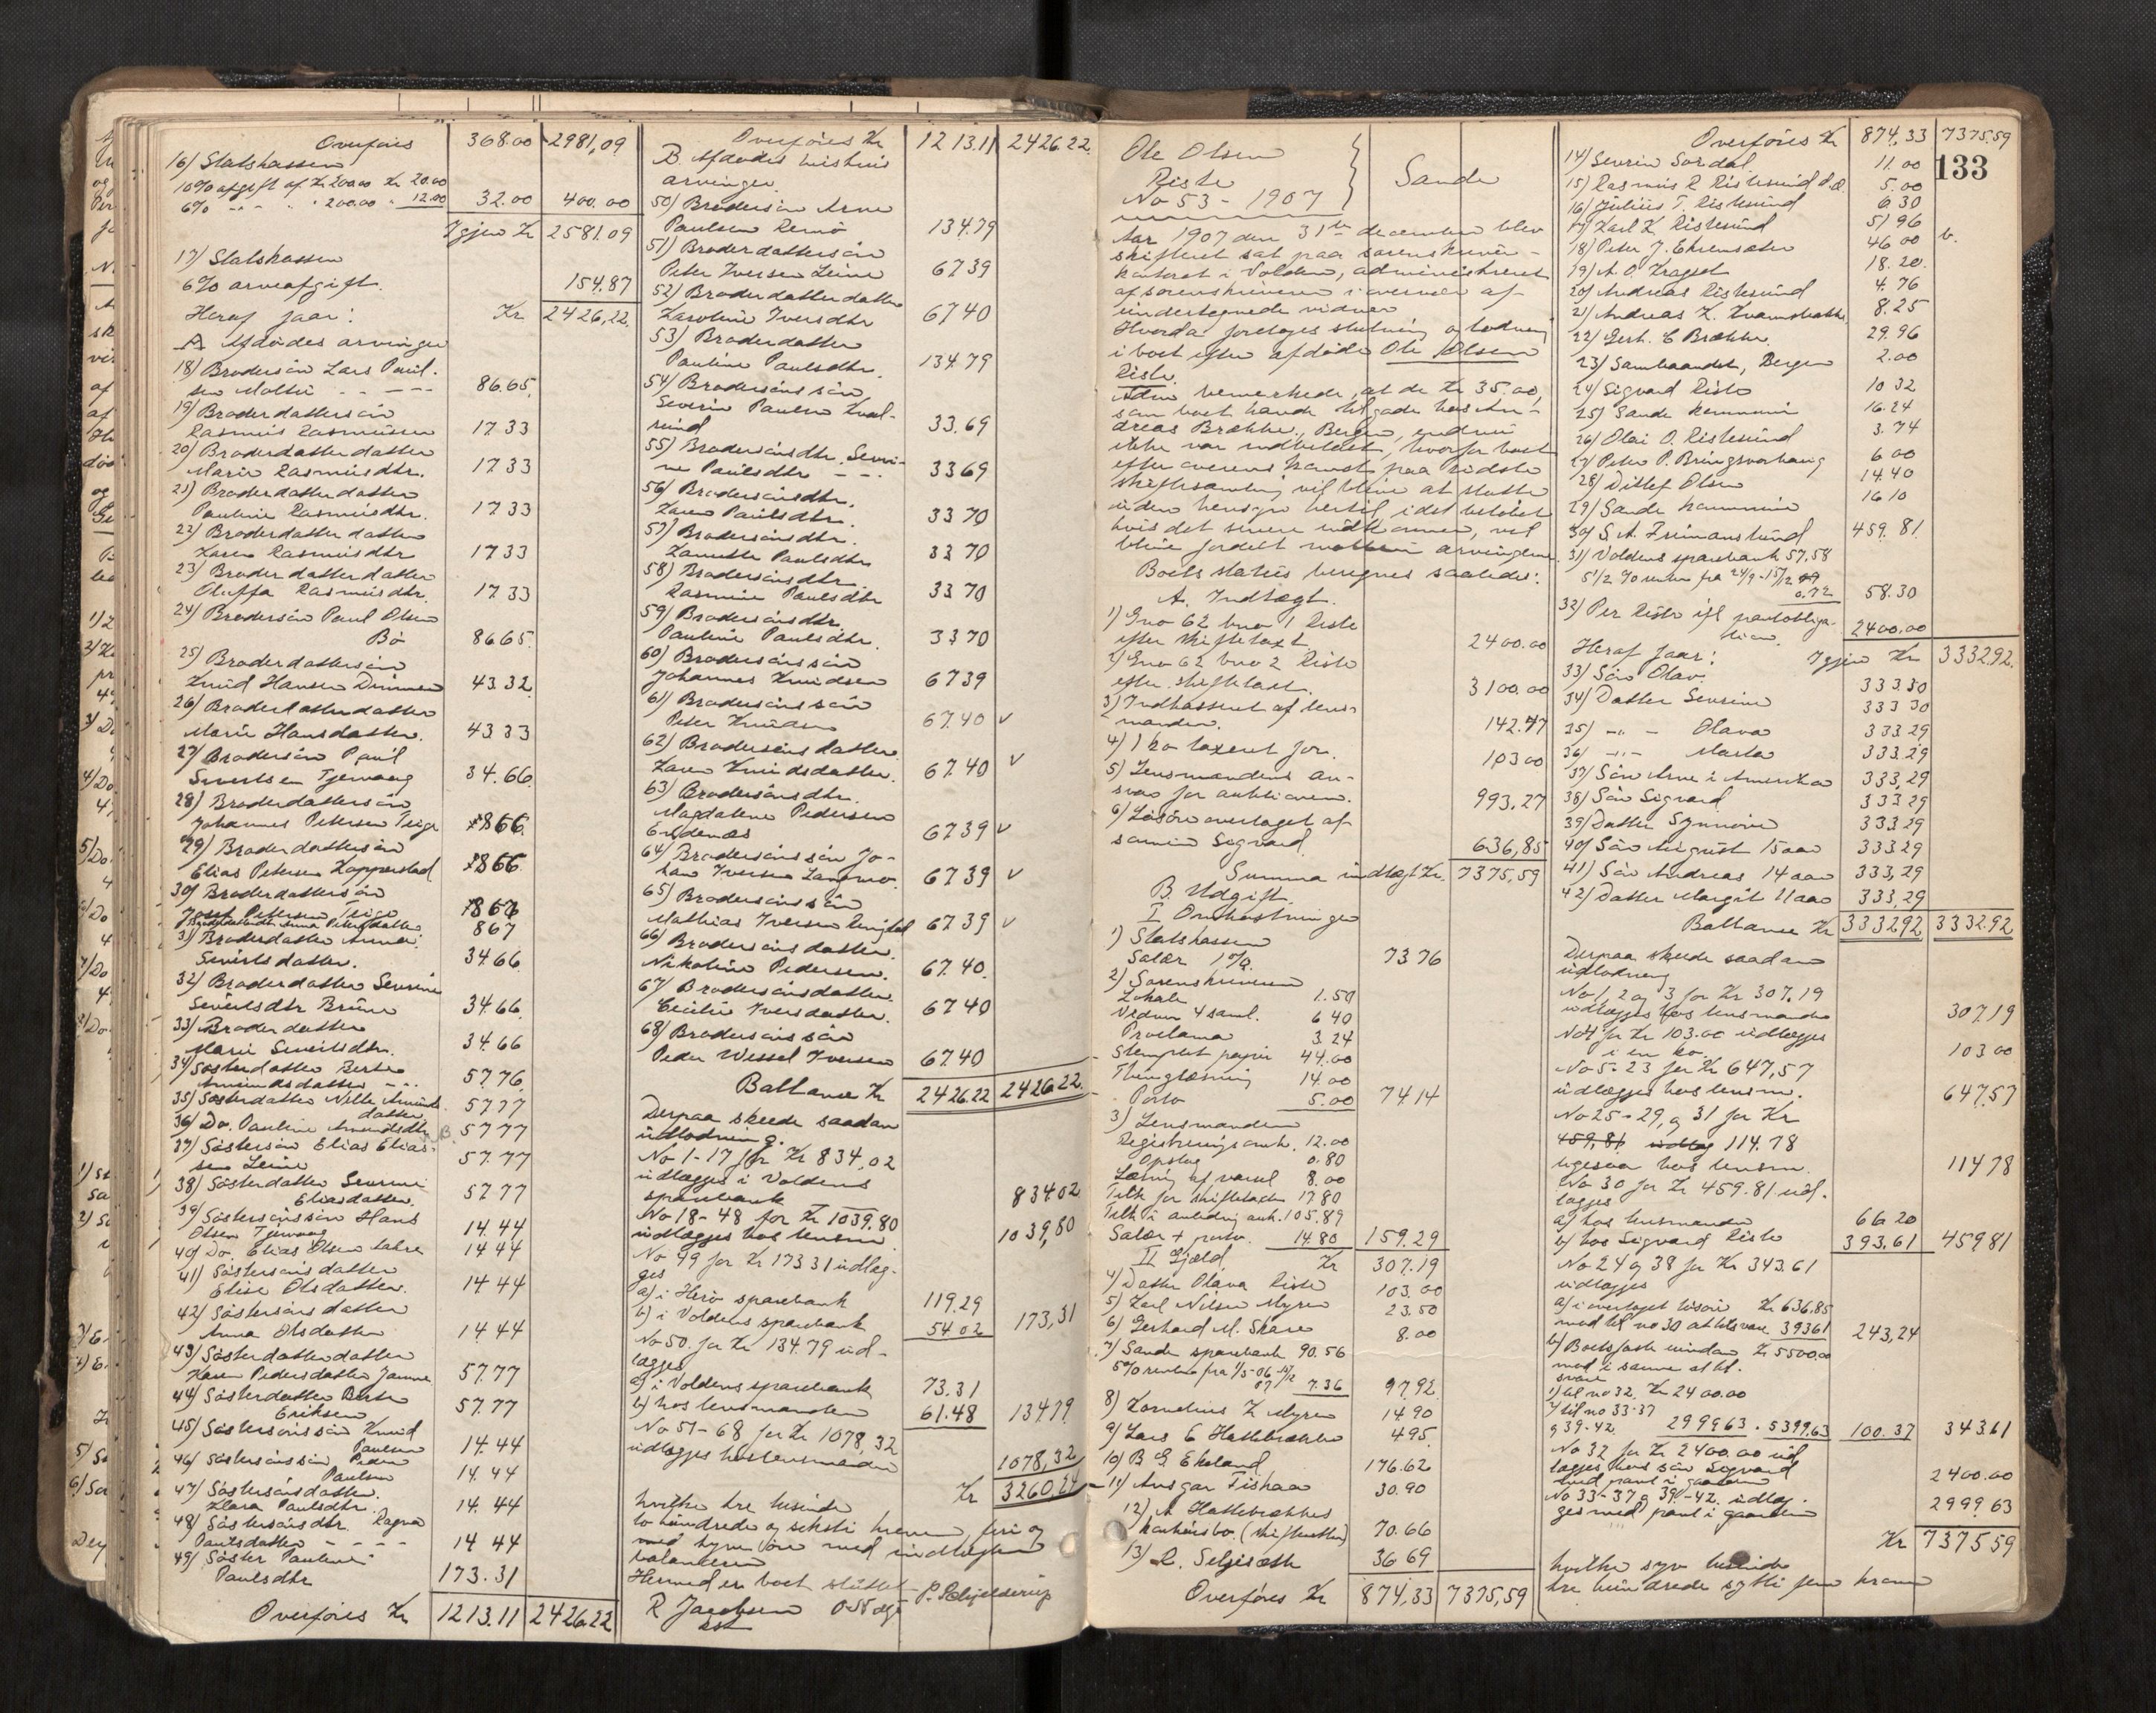 Overføres 368.00 2981,09
16) Statskassen
10% afgift af Kr 200.00 Kr 20.00
6% -"- " " 200.00 " 12.00 32.00 400.00
Igjen Kr 2581.09
17) Statskassen
6% arveafgift. 154.87
Heraf faar: Kr 2426,22
A Afdødes arvinger
18) Brodersøn Lars Paul-
sen Moltu - - - 86.65
19) Broderdattersøn
Rasmus Rasmussen 17 33
20) Broderdatterdatter
Marie Rasmusdtr. 17 33
21) Broderdatterdatter
Pauline Rasmusdtr. 17 33
22) Broderdatterdatter
Karen Rasmusdtr 17 33
23) Broderdatterdatter
Oluffa Rasmusdtr. 17 33
24) Brodersøn Paul Olsen
Bø 86 65
25) Broderdattersøn
Knud Hansen Dimmen 43 32
26) Broderdatterdatter
Marie Hansdatter. 43 33
27) Brodersøn Paul
Sivertsen Tjervaag 34.66
28) Broderdattersøn
Johannes Pettersen Teige 866
29) Broderdattersøn
Elias Petersen Kopperstad 866
30) Broderdattersøn
Josef Pettersen Teige 866
Anna Pettersdatter 867
31) Broderdatter Anna
Sivertsdatter. 34 66
32) Broderdatter Severine
Sivertsdtr Brune 34 66
33) Broderdatter
Marie Sivertsdtr. 34 66
34) Søsterdatter Berte
Amundsdatter - - - 57.76
35) Søsterdatter Nille Amunds
datter 57.77
36) Do. Pauline Amundsdtr B. 57 77
37) Søstersøn Elias Elias-
sen Leine 57.77
38) Søsterdatter Severine
Eliasdatter. 57 77
39) Søstersønssøn Hans
Olsen Tjervaag 14.44
40) Do. Elias Olsen Sahre 14 44
41) Søstersønsdatter
Elise Olsdatter. 14 44
42) Søstersønsdatter
Anna Olsdatter 14 44
43) Søsterdatterdatter
Karen Pedersdatter 57.77
44) Søsterdatter Berte
Eriksen 57.77
45) Søstersønssøn Knud
Paulsen 14.44
46) Søstersønssøn Peder
Paulsen 14.44
47) Søstersønsdatter.
Klara Paulsdtr. 14 44
48) Søstersønsdtr. Ragna
Paulsdatter - - - - 14 44
49) Søster Pauline
Paulsdtr 173.31
Overføres Kr 1213.11 2426.22
Overføres Kr 1213.11 2426.22
B. Afdødes hustrus
arvinger.
50) Brodersøn Arne
Paulsen Remø 134.79
51) Broderdattersøn
Peter Iversen Leine 67 39
52) Broderdatterdatter
Karoline Iversdtr 67 40
53) Broderdatter
Pauline Paulsdtr. 134.79
54) Brodersønssøn
Severin Paulsen Kval-
sund 33.69
55) Brodersønsdtr. Severi-
ne Paulsdtr - - - 33 69
56) Brodersønsdtr.
Karen Paulsdtr. 33 70
57) Brodersønsdtr.
Lannette Paulsdtr 33 70
58) Brodersønsdtr.
Rasmine Paulsdtr 33 70
59) Brodersønsdtr.
Pauline Paulsdtr. 33 70
60) Brodersønssøn
Johannes Knudsen 67 39
61) Brodersønssøn
Peter Knudsen 67.40 v
62) Brodersønsdatter
Karen Knudsdatter. 67.40 v
63) Brodersønsdtr.
Magdalene Pedersen
67 39 v
64) Brodersønssøn Jo-
han Iversen 67 39 v
65) Brodersønssøn
Mathias Iversen 67 39 v
66) Brodersønsdatter.
Nikoline Pedersen. 67.40.
67) Brodersønsdatter.
Cecilie Iversdatter. 67 40
68) Brodersønssøn
Peder Wessel Iversen 67.40
Ballance Kr 2426.22 2426.22
Derpaa skeede saadan
udlodning.
No 1-17 for Kr 834,02
udlægges i Voldens
sparebank 834 02
No 18-48 for Kr 1039.80
udlægges hos lensm. 1039,80
No 49 for Kr 173 31 udlæg-
ges
a) i Herø sparebank 119.29
b) i Voldens sparebank 54 02 173,31
No 50. for Kr 134.79 ud-
lægges
a) i Voldens sparebank 73.31
b) hos lensmanden 61.48 134 79
No 51-68 for Kr 1078,32
udlægges hos lensmanden 1078,32
Kr 3260,24
hvilke tre tusinde
to hundrede og seksti kroner, firi og
tyve øre med indtægten
balancerer
Hermed er boet sluttet P. Schjelderup
R Jacobsen
Ole Olsen
Riste
No 53 - 1907
Sande
Aar 1907 den 31te december blev
skifteret sat paa sorenskriver-
kontoret i Volden, administreret
af sorenskriveren i overvær af
undertegnede vidner
Hvorda foretoges slutning og lodning
i boet efter afdøde Ole Olsen
Riste.
Adm bemerkede, at de Kr 35.00,
som boet havde tilgode hos An-
dreas Brække, Bergen, endnu
ikke var indbetalt, hvorfor boet
efter overenskomst paa sidste
skiftesamling vil blive at slutte
uden hensyn hertil, idet beløbet
hvis det senere indkommer, vil
blive fordelt mellem arvingerne.
Boets status beregnes saaledes:
A. Indtægt.
1) Gno 62 bno 1 Riste
efter skiftetaxt. 2400.00
2) Gno 62 bno 2 Riste
efter skiftetaxt. 3100.00
3) Indkasseret af lens-
manden. 142.47
4) 1 ko taxeret for. 103 00
5) Lensmandens an-
svar for auktionen. 993.27
6) Løsøre overtaget af
sønnen Sigvard 636,85
Summa indtægt Kr. 7375,59
B. Udgift.
I Omkostninger
1) Statskassen
Salær 1%. 73 76
2) Sorenskriveren
Lokale 1.50
Vidner 4 saml. 6 40
Proclama 3 24
Stemplet papir 44.00
Thinglæsning 14.00
Porto 5.00 74 14
3) Lensmanden
Registreringsomk. 12.00
Opslag 0.80
Læsning af varsel 8.00
Tilk for skiftetaxten 17.80
Tilk i anledning auk. 105.89
Salær + porto. 14.80 159.29
II Gjæld Kr 307.19
4) Datter Olava Riste 103.00
5) Karl Nilsen Myren 23.50
6) Gerhard M. Skare 8.00
7) Sande sparebank 90.56
5% renter fra 1/5-06-15/12
07 7.36 97.92
8) Kornelius K Myren 14 90
9) Lars E Hattebrække 495
10) B G Ekeland 176.62
11) Ansgar Fiskaa 30.90
12) A Hattebrækkes
konkursbo. (skifteretten) 70.66
13) R. Selgisæth 36 69
Overføres Kr 874,33 7375,59
Overføres Kr 874,33 7375.59
133
14) Severin Sordal. 11.00
15) Rasmus R Ristesund 5.00
16) Julius T. Ristesund 6 30
17) Karl K Ristesund 51 96
18) Peter J. Ekremsæter 46 00
19) A. O. Kragset 18.20.
20) Andreas Ristesund 4.76
21) Andreas K. 8.25
22) Gert. E Brække 29.96
23) Sambaandet, Bergen 2.00
24) Sigvard Riste 10 32
25) Sande kommune 16.24
26) Olai O. Ristesund 3.74
27) Peter P. Bringsvorhaug 6 00
28) Ditlef Olsen 14.40
29) Sande kommune 16 10
30) S. A. Freimanslund 459.81
31) Voldens sparebank 57,58
5 1/2 % renter fra 24/9-15/12
0.72 58.30
32) Per Riste ifl pantobliga-
tion 2400.00
Igjen Kr 3332.92
Heraf faar:
33) Søn Olav. 333.30
34) Datter Severine 333 30
35) -"- - Olava 333 29
36) -"- Marta 333.29
37) Søn Arne i Amerika 333,29
38) Søn Sigvard 333 29
39) Datter Synnøve 333 29
40) Søn August 15 aar 333 29
41) Søn Andreas 14 aar 333,29
42) Datter Margit 11 aar 333,29
Ballance Kr 3332.92 3332.92
Derpaa skeede saadan
udlodning
No 1, 2 og 3 for Kr 307.19
udlægges hos lensmanden 307.19
No 4 for Kr 103.00 udlægges
i en ko. 103 00
No 5-23 for Kr 647,57
udlægges hos lensm. 647,57
No 25-29, og 31 for Kr
459,81 udlæg 114.78
ligesaa hos lensm. 114 78
No 30 for Kr 459.81 ud-
lægges
a) hos lensmanden 66.20
b) hos Sigvard Riste 393.61 459 81
No 24 og 38 for Kr 343.61
udlægges
a) i overtaget løsøre Kr 636.85
mod til no 30 at tilsvare 393.61 243,24
b) Boets faste eiendom Kr 5500.00
mod i samme at til-
svare
1) til no 32. Kr 2400.00
2) til no 33-37
og 39-42. 2999 63 . 5399.63 100.37 343.61
No 32 for Kr 2400.00 ud
lægges hos søn Sigvard
med pant i gaarden 2400.00
No 33-37 og 39-42 udlæg-
ges med pant i gaarden 2999 63
Kr 7375 59
hvilke syv tusinde
tre hundrede sytti fem kroner